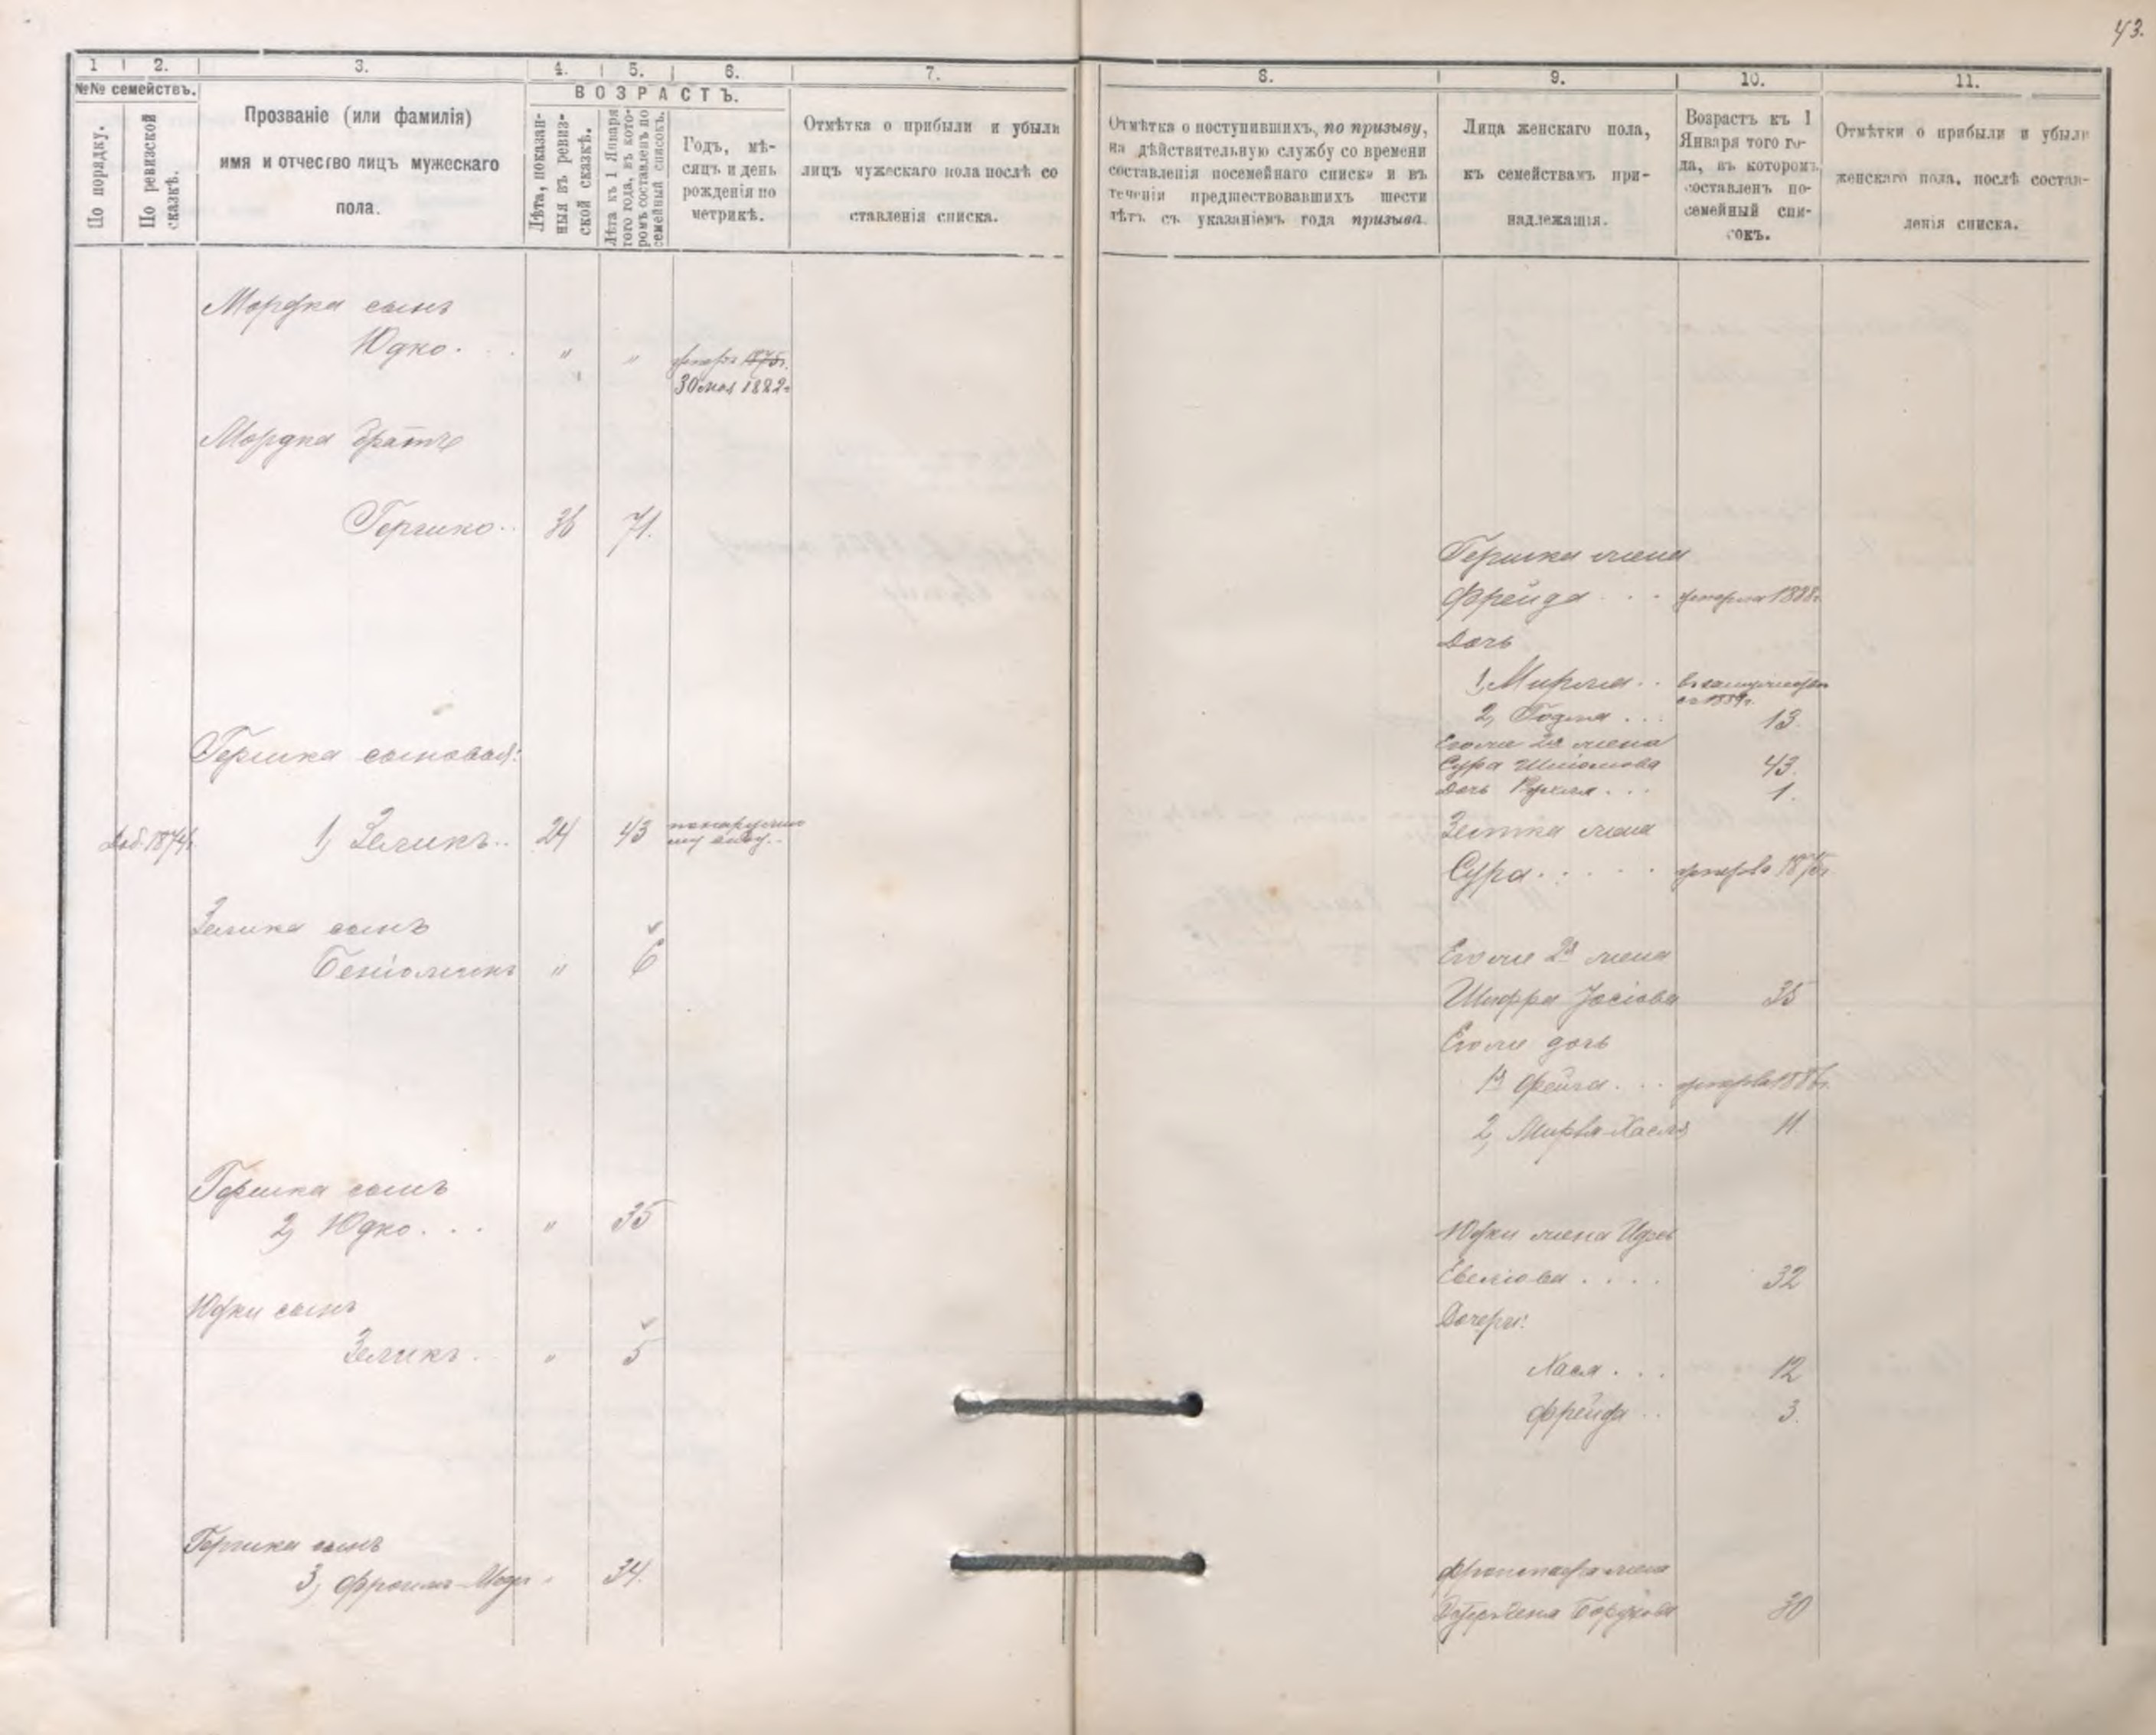 43.
1 2. 3. 4. 5. 6. 7.
№№ семействъ.
По порядку.
По ревизской сказкѣ.
Прозваніе (или фамилія)
имя и отчество лицъ мужескаго
пола.
ВОЗРАСТЪ.
Лѣта, показан-
ныя въ ревиз-
ской сказкѣ.
Лѣта къ 1 Января
того года, въ кото-
ромъ составленъ по
семейный списокъ.
Годъ, мѣ-
сяцъ и день
рожденія по
метрикѣ.
Отмѣтка о прибыли и убыли
лицъ мужескаго пола послѣ со
ставленія списка.
Мордка сынъ
Юдко. " "
1875г.
30 мая 1882г
Мордка братъ
Гершко 36 71.
Гершка сыновья:
Доб. 1874г. 1, Зеликъ 24 43
Зелика сынъ
Беніоминъ " 6
Гершка сынъ
2, Юдко. " 35
Юдки сынъ
Зеликъ. " 5
Гершка сынъ
3, Фроимъ " 34.
8. 9. 10. 11.
Отмѣтка о поступившихъ, по призыву,
на дѣйствительную службу со времени
составленія посемейнаго списка и въ
теченіи предшествовавшихъ шести
лѣтъ съ указаніемъ года призыва.
Лица женскаго пола,
къ семействамъ при-
надлежащія.
Возрастъ къ 1
Января того го-
да, въ которомъ
составленъ по-
семейный спи-
сокъ.
Отмѣтки о прибыли и убыли
женскаго пола, послѣ состав-
ленія списка.
Гершка жена
Фрейда умерла 1888г.
Дочь
1, Мирля въ замужествѣ
2, Годля 13.
Его же 2я жена
Сура Шліомова 43.
Дочь 1.
Зелика жена
Сура умерла
Его же 2я жена
Шифра Іосіова 35
Его же дочь
1я Фейга. умерла 1886г.
2, Хася 11
Юдки жена
32
Дочери:
Хася 12
Фрейда 3.
жена
Борухова 30